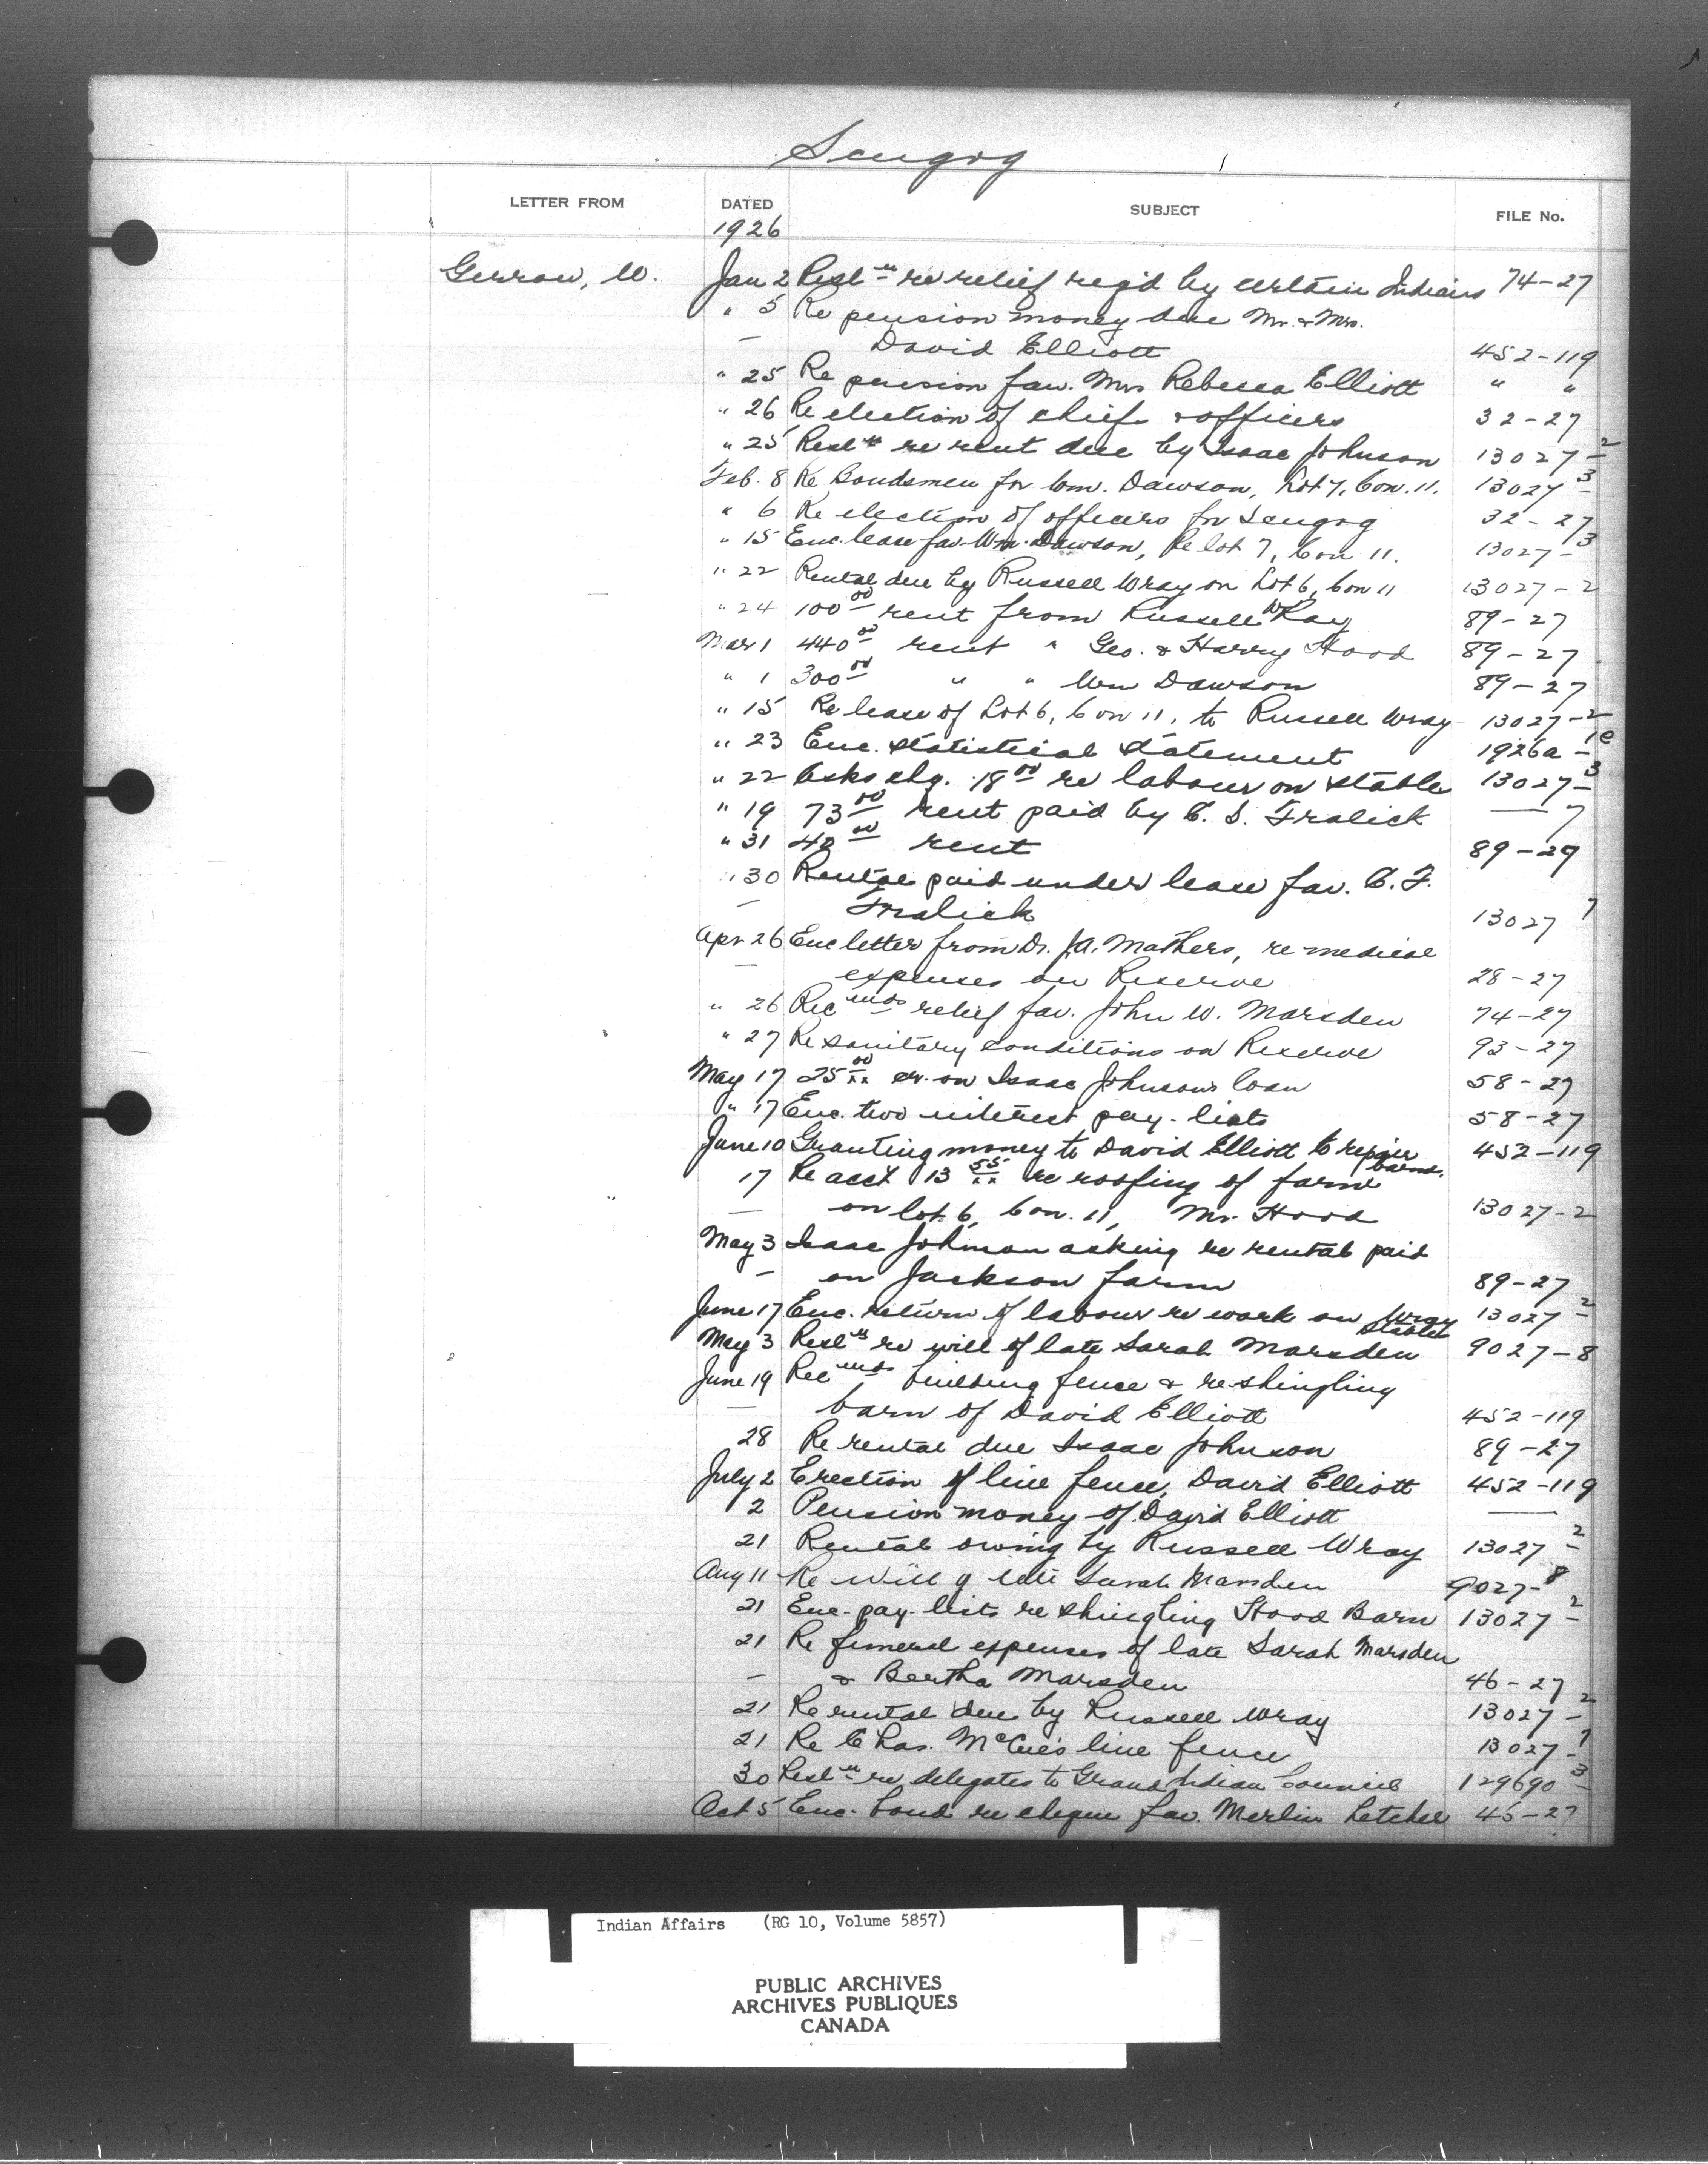 Scugog
LETTER FROM DATED SUBJECT FILE No.
1926
Gerrow, W. Jan 2 Resl<sup>n</sup> re relief req'd by certain Indians 74-27
" 5 Re pension money due Mr. & Mrs.
— David Elliott 452-119
" 25 Re pension fav. Mrs Rebecca Elliott " "
" 26 Re election of chief & officers 32-27
" 25 Resl<sup>n</sup> re rent due by Isaac Johnson 13027-2
Feb. 8 Re Bondsmen for Wm. Dawson, Lot 7, Con. 11. 13027-3
" 6 Re election of officers for Scugog 32-27
" 15 Enc. lease fav. Wm. Dawson, Re lot 7, Con 11. 13027-3
" 22 Rental due by Russell Wray on Lot 6, Con 11 13027-2
" 24 100<sup>00</sup> rent from Russell WRay 89-27
Mar 1 440<sup>00</sup> rent " Geo. & Harry Hood 89-27
" 1 300<sup>00</sup> " " Wm Dawson 89-27
" 15 Re lease of Lot 6, Con 11, to Russell Wray 13027-2
" 23 Enc. statistical statement 1926a-1c
" 22 Asks chq. 18<sup>00</sup> re labour on stable 13027-3
" 19 73<sup>00</sup> rent paid by C. S. Fralick — 7
" 31 42<sup>00</sup> rent 89-29
" 30 Rental paid under lease fav. C. F.
— Fralick 13027 7
Apr 26 Enc letter from Dr. J.A. Mathers, re medical
— expenses on Reserve 28-27
" 26 Rec<sup>mds</sup> relief fav. John W. Marsden 74-27
" 27 Re sanitary conditions on Reserve 93-27
May 17 25<sup>00</sup> xx cr. on Isaac Johnsons loan 58-27
" 17 Enc. two interest pay-lists 58-27
June 10 Granting money to David Elliott to repair barns. 452-119
17 Re acct 13 <sup>55</sup> xx re roofing of farm
— on lot 6, Con. 11, Mr. Hood 13027-2
May 3 Isaac Johnson asking re rental paid
— on Jackson farm 89-27
June 17 Enc. return of labour re work on Wray stable 13027-2
May 3 Resl<sup>n</sup> re will of late Sarah Marsden 9027-8
June 19 Rec<sup>mds</sup> building fence & re-shingling
— barn of David Elliott 452-119
28 Re rental due Isaac Johnson 89-27
July 2 Erection of line fence, David Elliott 452-119
2 Pension money of David Elliott —
21 Rental owing by Russell Wray 13027-2
Aug 11 Re will of late Sarah Marsden 9027-8
21 Enc. pay-lists re shingling Hood Barn 13027-2
21 Re funeral expenses of late Sarah Marsden
— & Bertha Marsden 46-27
21 Re rental due by Russell Wray 13027-2
21 Re Chas. McCue's line fence 13027-7
30 Resl<sup>n</sup> re delegates to Grand Indian Council 129690-3
Oct 5 Enc. bond re cheque fav. Merlin Letcher 45-27
Indian Affairs (RG 10, Volume 5857)
PUBLIC ARCHIVES
ARCHIVES PUBLIQUES
CANADA